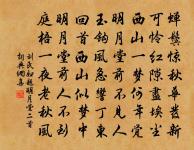 蟬鬢驚秋華髮新
可憐紅隙盡埃塵
西山一夢何年覺
明月堂前不見人
玉鉤風急響丁東
回首西山似夢中
明月堂前人不到
庭梧一夜老秋風
劉氏婦題明月堂二首